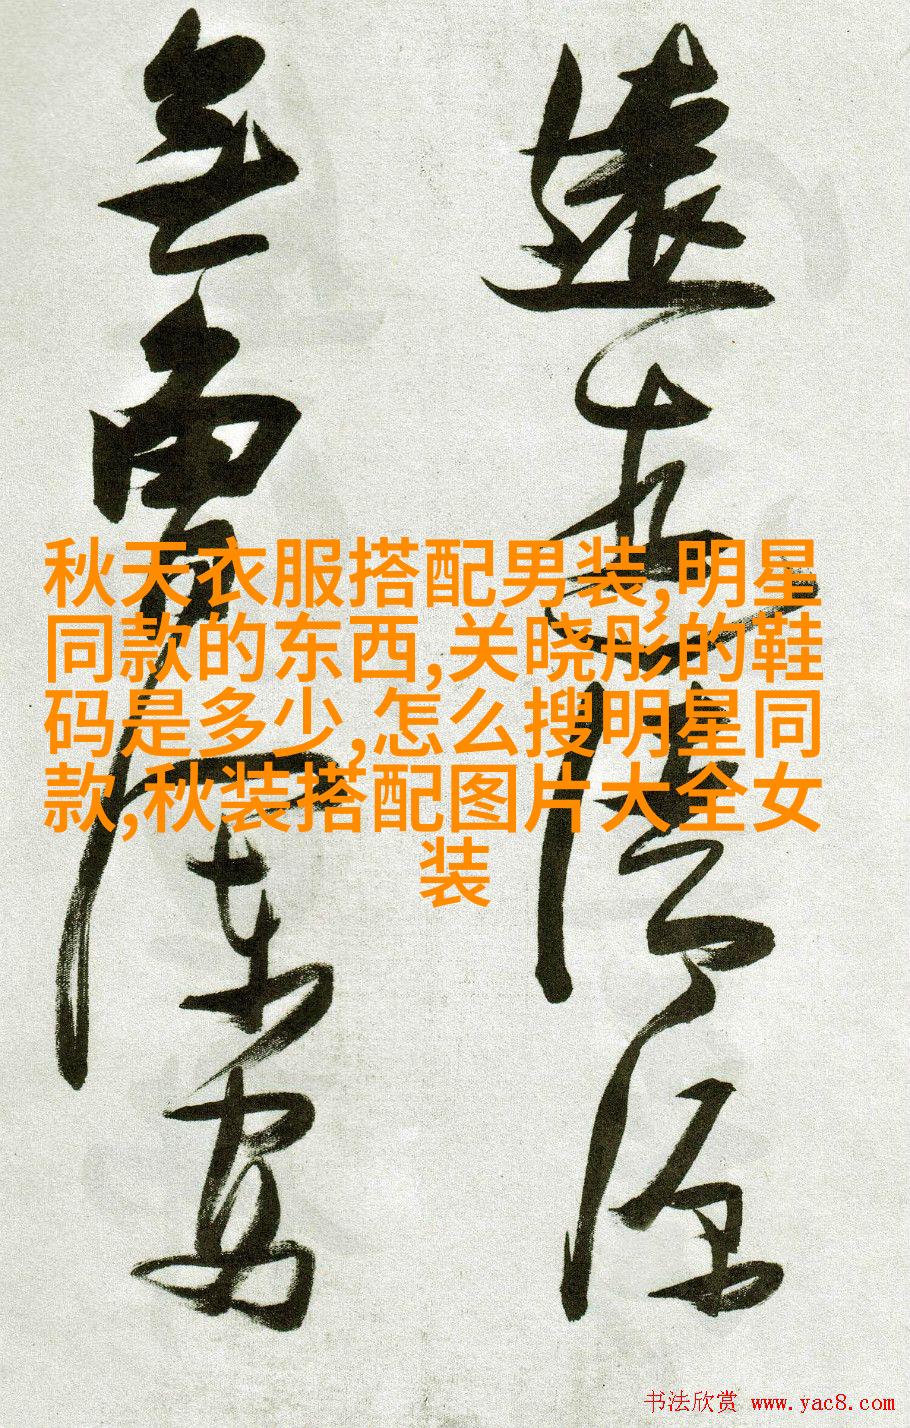 遠
無
秋天衣服搭配男装,明星
同款的东西,关晓彤的鞋
码是多少,怎么搜明星同
款,秋装搭配图片大全女
装
书法欣赏 www.yac8.com